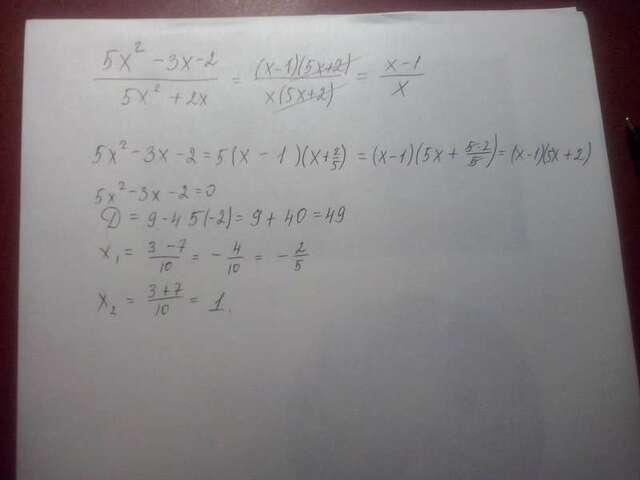 5x² - 3x - 2 / 5x² + 2x = (x-1)(5x+2) / x(5x+2) = x-1 / x
5x² - 3x - 2 = 5(x - 1)(x + 2/5) = (x-1)(5x + 5·2/5) = (x-1)(5x+2)
5x² - 3x - 2 = 0
D = 9 - 4·5(-2) = 9 + 40 = 49
x₁ = 3 - 7 / 10 = - 4/10 = - 2/5
x₂ = 3 + 7 / 10 = 1.